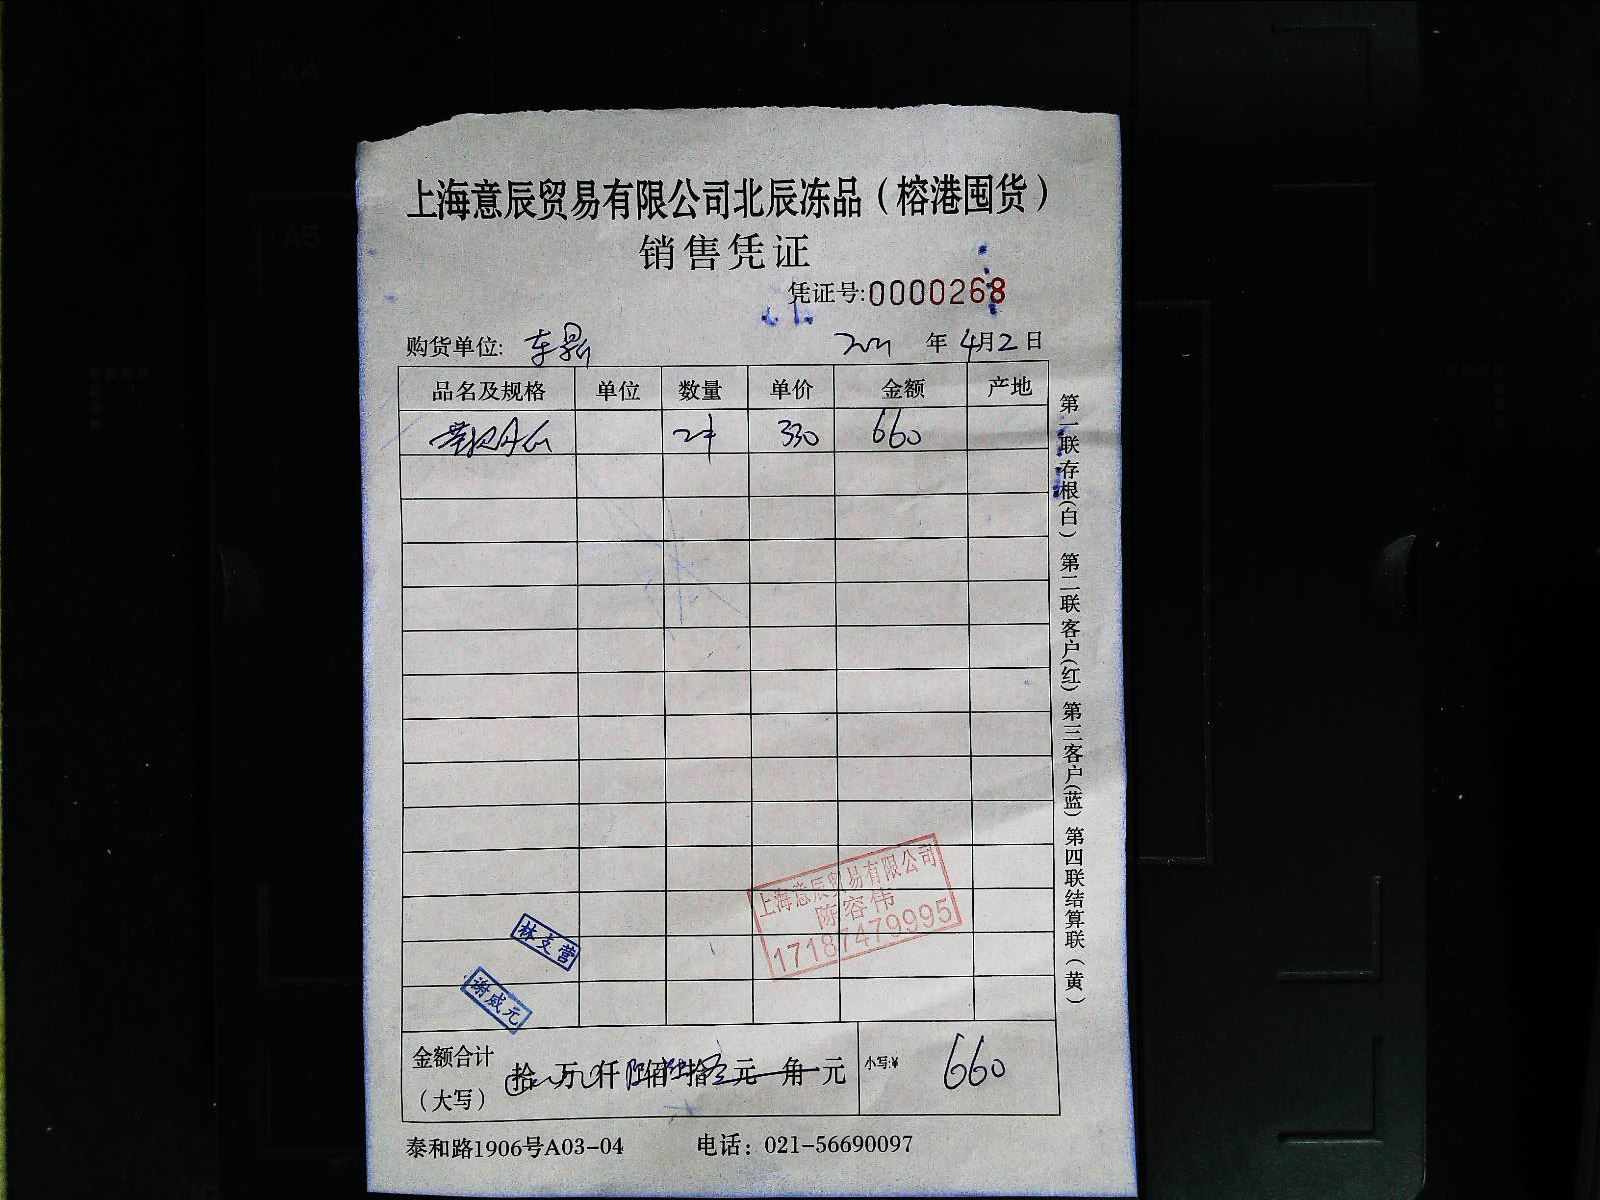 上海意辰贸易有限公司北辰冻品（榕港囤货）
销售凭证
凭证号:0000268
购货单位: 车易 2021 年 4月2日
品名及规格 单位 数量 单价 金额 产地
2件 330 660
第一联存根(白) 第二联客户(红) 第三客户(蓝) 第四联结算联(黄)
上海意辰贸易有限公司
陈容伟
17187479995
林支营
谢咸元
金额合计
（大写） 拾 万 仟 陆佰陆拾 元 角 元 小写:¥ 660
泰和路1906号A03-04 电话：021-56690097